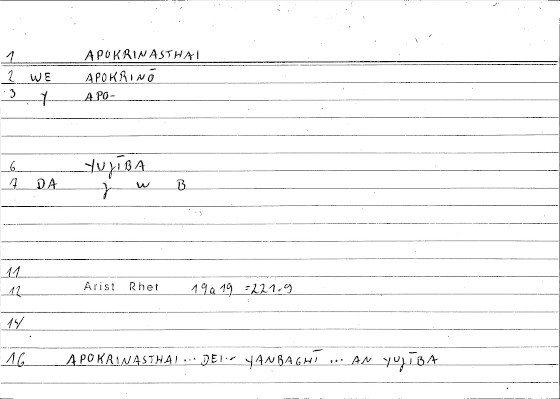 1 APOKRINASTHAI
2 WE APOKRINŌ
3 Y APO-
6 YUǦĪBA
7 DA ǧ W B
11
12 Arist Rhet 19a19 =221.9
14
16 APOKRINASTHAI ... DEI.. YANBAGHĪ ... AN YUǦĪBA